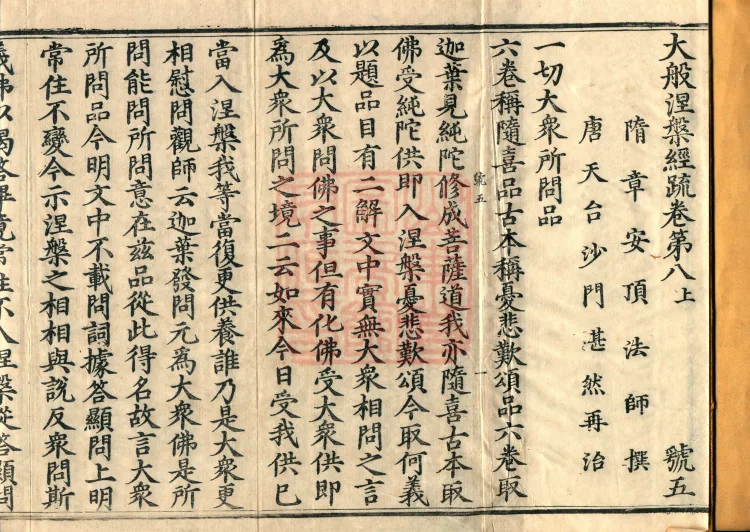 大般涅槃經䟽卷第八上 號五
隋章安頂法師撰
唐天台沙門湛然再治
一切大衆所問品
六卷稱隨喜品古本稱憂悲歎頌品六卷取
號五 一
迦葉見純陀修成菩薩道我亦隨喜古本取
佛受純陀供即入涅槃憂悲歎頌今取何義
以題品目有二解文中實無大衆相問之言
及以大衆問佛之事但有化佛受大衆供即
為大衆所問之境二云如來今日受我供已
當入涅槃我等當復更供養誰乃是大衆更
相慰問觀師云迦葉發問元為大衆佛是所
問能問所問意在茲品從此得名故言大衆
所問品今明文中不載問詞據答顯問上明
常住不變今示涅槃之相相與說反衆問斯
義佛以偈答畢竟常住不入涅槃從答顯問